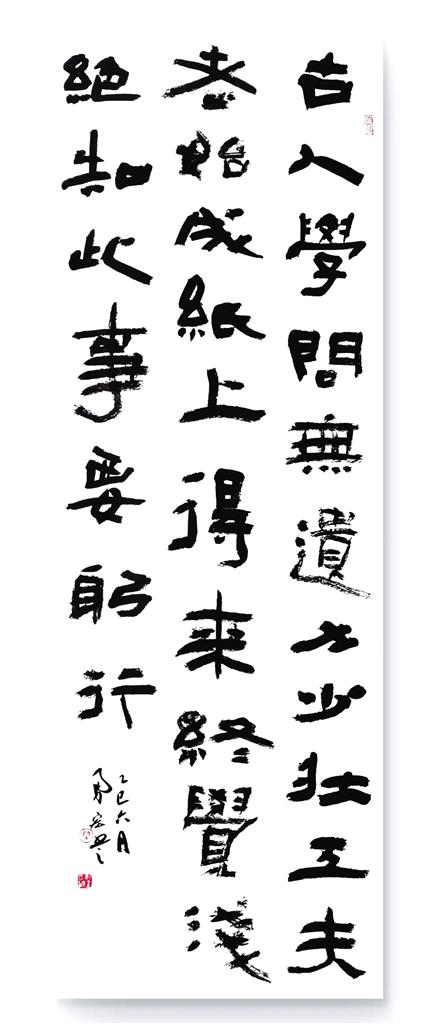 古人學問無遺力少壯工夫
老始成紙上得來終覺淺
絕知此事要躬行
乙巳六月